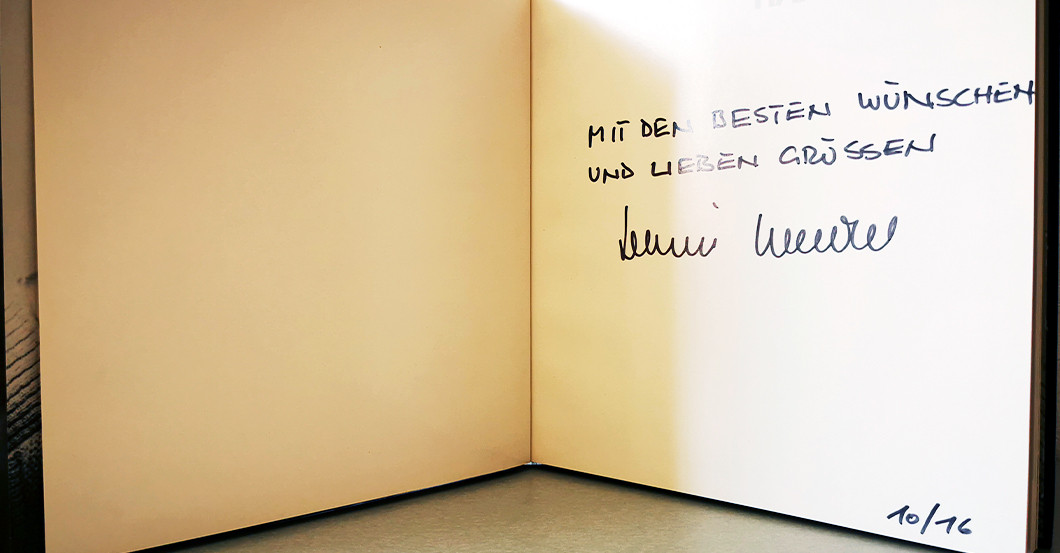 MIT DEN BESTEN WÜNSCHEN
UND LIEBEN GRÜSSEN
10/16